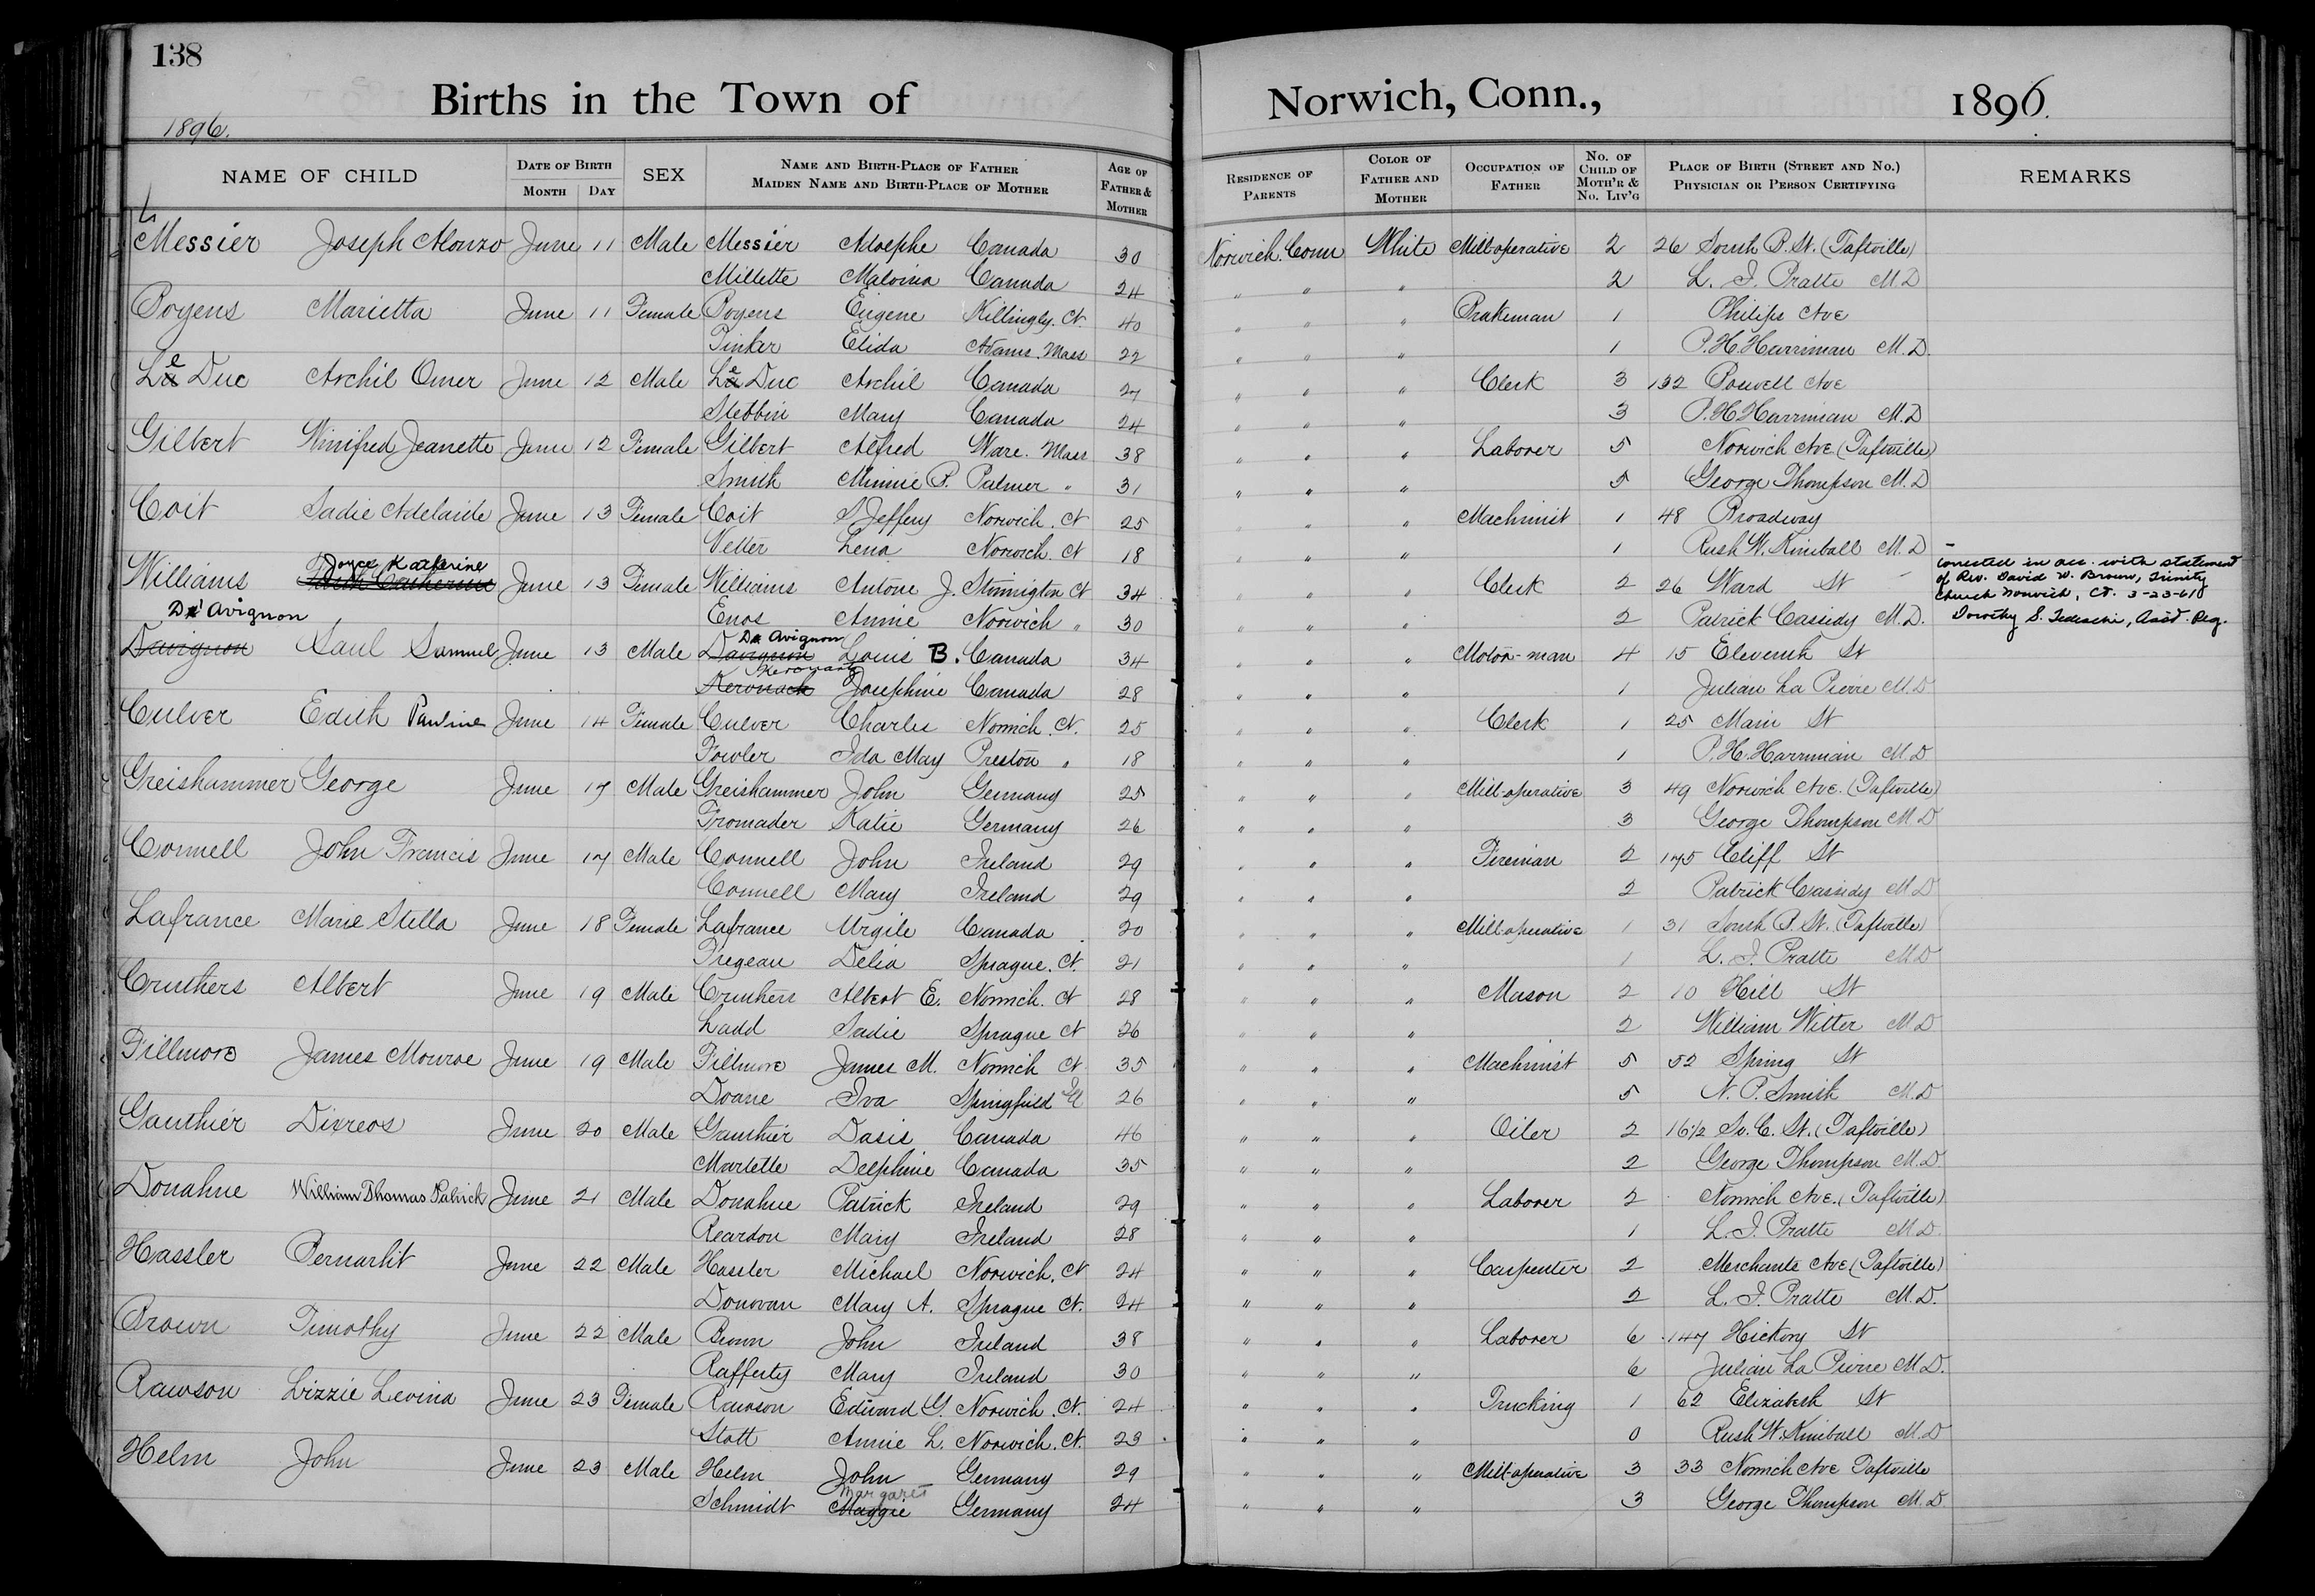 138
Births in the Town of Norwich, Conn., 1896.
1896.
NAME OF CHILD DATE OF BIRTH MONTH DAY SEX NAME AND BIRTH-PLACE OF FATHER MAIDEN NAME AND BIRTH-PLACE OF MOTHER AGE OF FATHER & MOTHER RESIDENCE OF PARENTS COLOR OF FATHER AND MOTHER OCCUPATION OF FATHER NO. OF CHILD OF MOTH'R & NO. LIV'G PLACE OF BIRTH (STREET AND NO.) PHYSICIAN OR PERSON CERTIFYING REMARKS
Messier Joseph Alonzo June 11 Male Messier Adolphe Canada 30 Norwich. Conn White Mill-operative 2 26 South B. St. (Taftville)
Millette Malvina Canada 24 " " " 2 L. I. Pratte M.D
Boyens Marietta June 11 Female Boyens Eugene Killingly. Ct. 40 " " " Brakeman 1 Philips Ave
Tinker Elida Adams. Mass 22 " " " 1 P. H. Harriman M.D.
Le Duc Archil Omer June 12 Male Le Duc Archil Canada 27 " " " Clerk 3 132 Boswell Ave
Stebbin Mary Canada 24 " " " 3 P. H. Harriman M.D
Gilbert Winifred Jeanette June 12 Female Gilbert Alfred Ware. Mass 38 " " " Laborer 5 Norwich Ave. (Taftville)
Smith Minnie B. Palmer " 31 " " " 5 George Thompson M.D
Coit Sadie Adelaide June 13 Female Coit S Jeffery Norwich. Ct 25 " " " Machinist 1 48 Broadway
Vetter Lena Norwich. Ct 18 " " " 1 Rush W. Kimball M.D
Joyce Katherine
Williams June 13 Female Williams Antone J. Stonington Ct 34 " " " Clerk 2 26 Ward St corrected in acc. with statement of Rev. David W. Brown, Trinity Church Norwich, Ct. 3-23-61
Enos Annie Norwich " 30 " " " 2 Patrick Cassidy M.D. Dorothy S. Tedeschi, Ass't. Reg.
D'Avignon
Davignon Saul Samuel June 13 Male Davignon D'Avignon Louis B. Canada 34 " " " Motor-man 4 15 Eleventh St
Keronack Josephine Canada 28 " " " 1 Julian La Pierre M.D
Culver Edith Pauline June 14 Female Culver Charles Norwich. Ct. 25 " " " Clerk 1 25 Main St
Fowler Ida May Preston " 18 " " " 1 P. H. Harriman M.D
Greishammer George June 17 Male Greishammer John Germany 25 " " " Mill-operative 3 49 Norwich Ave. (Taftville)
Fromader Katie Germany 26 " " " 3 George Thompson M.D
Connell John Francis June 17 Male Connell John Ireland 29 " " " Fireman 2 175 Cliff St
Connell Mary Ireland 29 " " " 2 Patrick Cassidy M.D
Lafrance Marie Stella June 18 Female Lafrance Urgile Canada 20 " " " Mill-operative 1 31 South B. St. (Taftville)
Tregeau Delia Sprague. Ct. 21 " " " 1 L. I. Pratte M.D
Cruthers Albert June 19 Male Cruthers Albert E. Norwich. Ct 28 " " " Mason 2 10 Hill St
Ladd Sadie Sprague Ct 26 " " " 2 William Witter M.D
Fillmore James Monroe June 19 Male Fillmore James M. Norwich Ct 35 " " " Machinist 5 52 Spring St
Doane Iva Springfield Ill 26 " " " 5 N. P. Smith M.D
Gauthier Divreos June 20 Male Gauthier Dasis Canada 46 " " " Oiler 2 16½ So. C. St. (Taftville)
Marlette Delphine Canada 35 " " " 2 George Thompson M.D.
Donahue William Thomas Patrick June 21 Male Donahue Patrick Ireland 29 " " " Laborer 2 Norwich Ave. (Taftville)
Reardon Mary Ireland 28 " " " 1 L. I. Pratte M.D.
Hassler Bernarht June 22 Male Hassler Michael Norwich. Ct 24 " " " Carpenter 2 Merchants Ave (Taftville)
Donovan Mary A. Sprague Ct. 24 " " " 2 L. I. Pratte M.D.
Brown Timothy June 22 Male Brown John Ireland 38 " " " Laborer 6 147 Hickory St
Rafferty Mary Ireland 30 " " " 6 Julian La Pierre M.D.
Rawson Lizzie Levina June 23 Female Rawson Edward G. Norwich. Ct. 24 " " " Trucking 1 62 Elizabeth St
Stott Annie L. Norwich. Ct. 23 " " " 0 Rush W. Kimball M.D
Helm John June 23 Male Helm John Germany 29 " " " Mill-operative 3 33 Norwich Ave Taftville
Schmidt Maggie Margaret Germany 24 " " " 3 George Thompson M.D